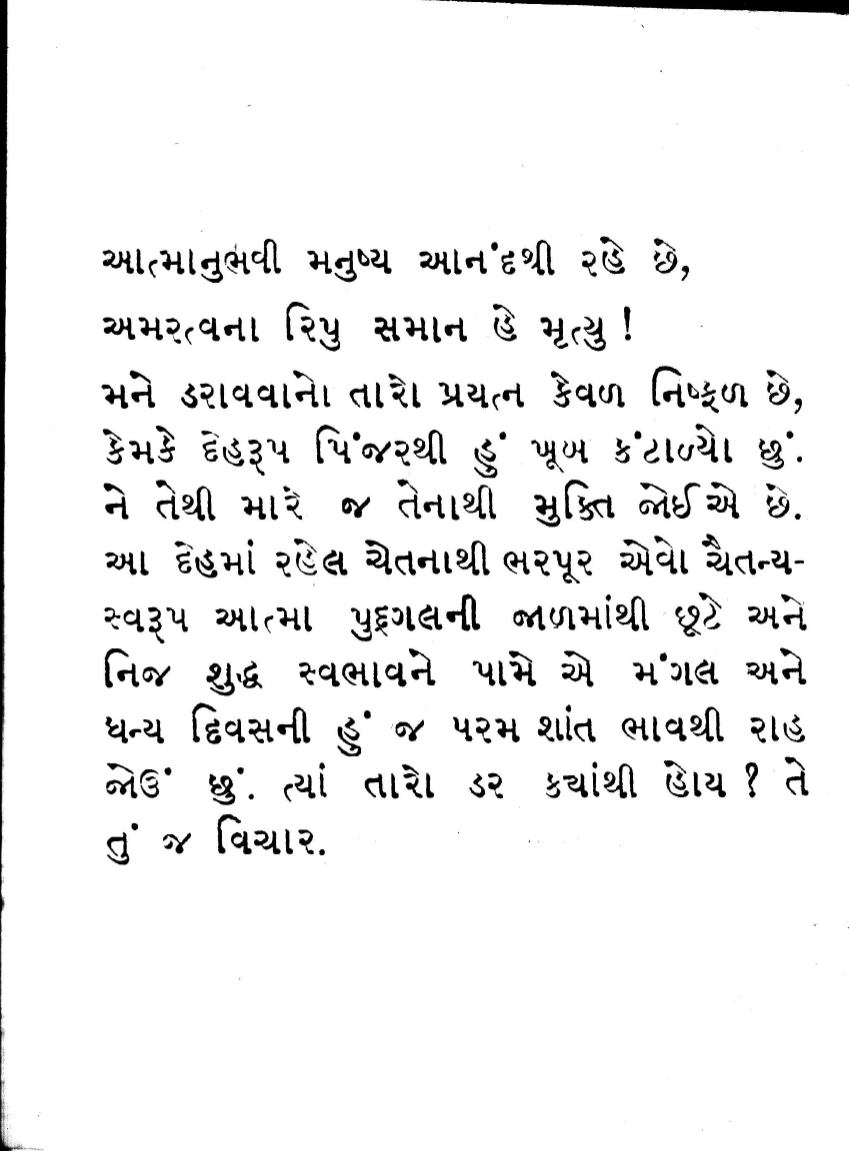 આત્માનુભવી મનુષ્ય આનંદથી રહે છે,
અમરત્વના રિપુ સમાન હે મૃત્યુ !
મને ડરાવવાનો તારો પ્રયત્ન કેવળ નિષ્ફળ છે,
કેમકે દેહરૂપ પિંજરથી હું ખૂબ કંટાળ્યો છું.
ને તેથી મારે જ તેનાથી મુક્તિ જોઈએ છે.
આ દેહમાં રહેલ ચેતનાથી ભરપૂર એવો ચૈતન્ય-
સ્વરૂપ આત્મા પુદ્દગલની જાળમાંથી છૂટે અને
નિજ શુદ્ધ સ્વભાવને પામે એ મંગલ અને
ધન્ય દિવસની હું જ પરમ શાંત ભાવથી રાહ
જોઉં છું. ત્યાં તારો ડર કયાંથી હોય ? તે
તું જ વિચાર.